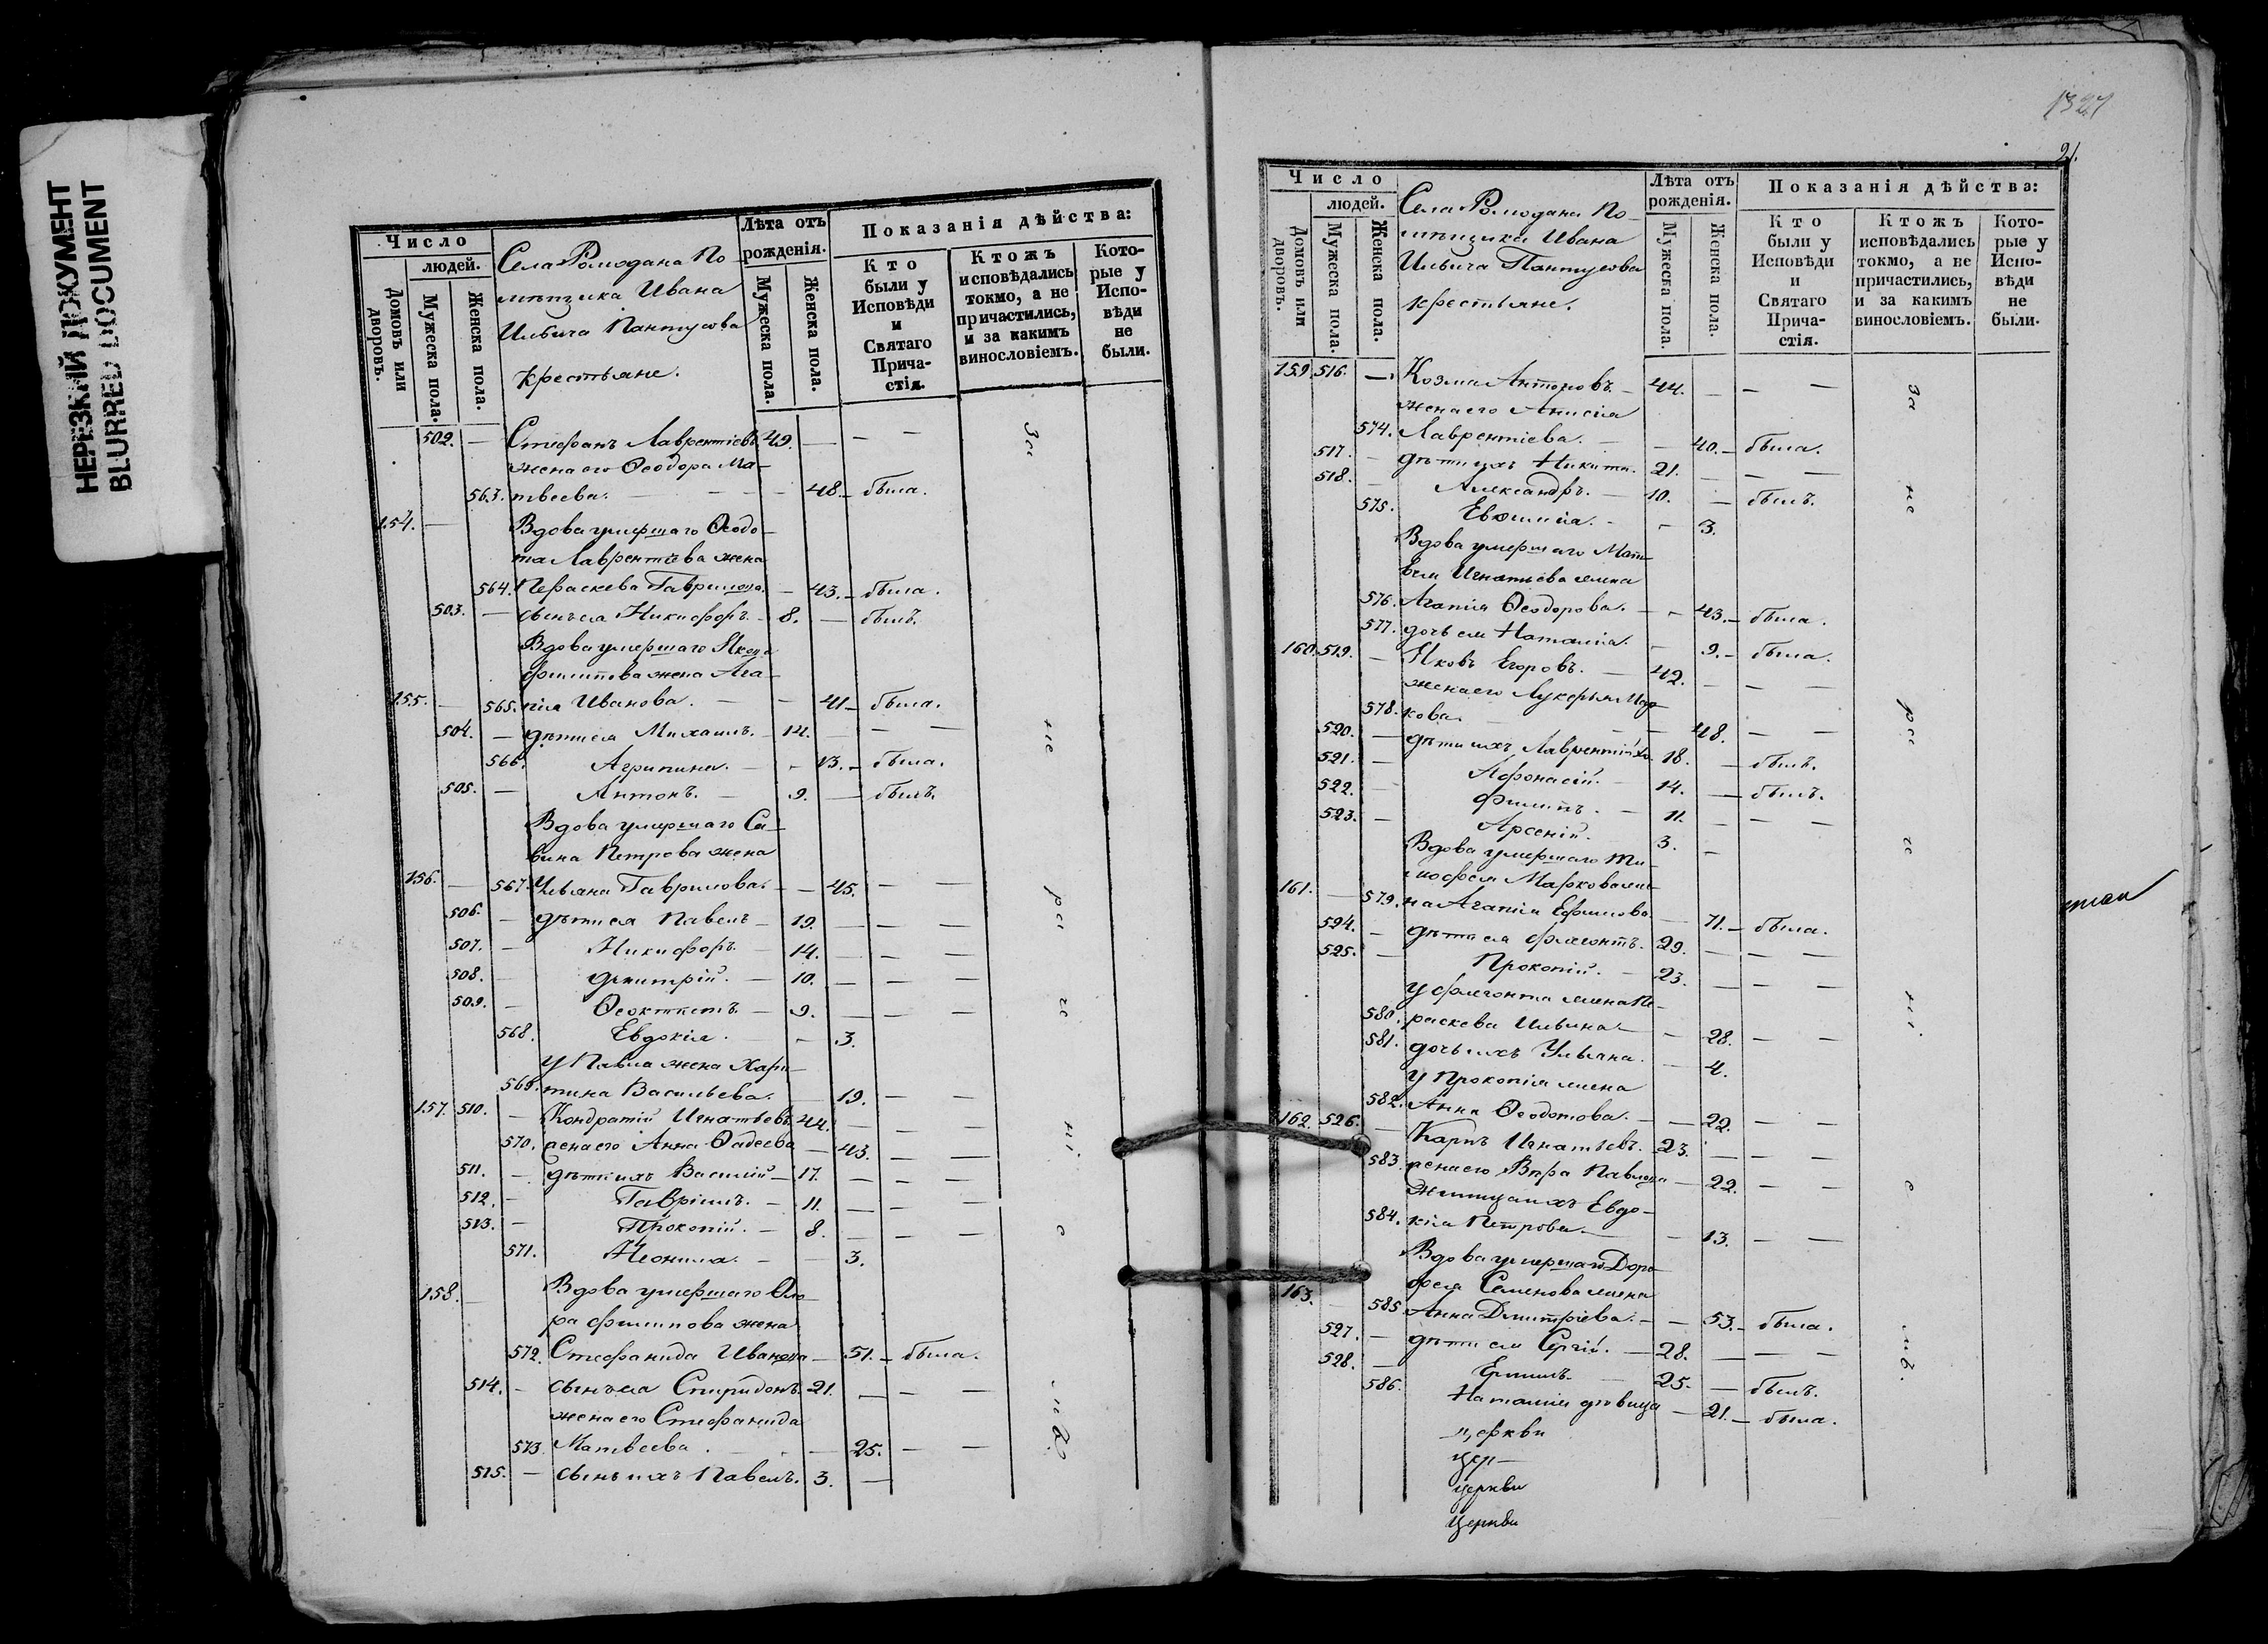 НЕРЕЗКИЙ ДОКУМЕНТ
BLURRED DOCUMENT
Число
людей.
Домовъ или дворовъ.
Мужеска пола.
Женска пола.
Села Ромодана По-
мѣщика Ивана
Ильича Пантусова
крестьяне.
Лѣта отъ
рожденія.
Мужеска пола.
Женска пола.
Показанія дѣйства:
Кто
были у
Исповѣди
и
Святаго
Прича-
стія.
Ктожъ
исповѣдались
токмо, а не
причастились,
и за какимъ
винословіемъ.
Кото-
рые у
Испо-
вѣди
не
были.
502. — Стефанъ Лаврентіевъ 49. — — —
жена его Ѳеодора Ма-
563. твеева. — — 48. — была.
154. — Вдова умершаго Ѳеодо-
та Лаврентьева жена
564. Параскева Гаврилова. — 43. — была.
503. — сынъ ея Никифоръ. — 8. — былъ.
Вдова умершаго Якова
Филипова жена Ага-
155. — 565. пія Иванова. — — 41 — была.
504. — дѣти ея Михаилъ. — 14. — — —
566. Агрипина. — — 13. — была.
505. — Антонъ. — 9. — былъ.
Вдова умершаго Са-
вина Петрова жена
156. — 567. Ульяна Гаврилова. — — 45. — —
506. — дѣти ея Павелъ — 19. — — —
507. — Никифоръ. — 14. — — —
508. — Дмитрій. — 10. — — —
509. — Ѳеоктистъ. — 9. — — —
568. Евдокія. — 3.
у Павла жена Хари-
569. тина Васильева. — 19. — —
157. 510. — Кондратій Игнатьевъ. 44. — — —
570. жена его Анна Ѳадеева — 43. — —
511. — дѣти ихъ Василій — 17. — — —
512. — Гавріилъ. — 11. — — —
513. — Прокопій. — 8. — — —
571. Неонила. — — 3.
158. — Вдова умершаго Фло-
ра Филипова жена
572. Стефанида Иванова — 51. — была.
514. — сынъ ея Спиридонъ. 21. — — —
жена его Стефанида
573. Матвеева. — — 25. — —
515. — сынъ ихъ Павелъ. 3. —
За
не
ра
че
ні
е
мъ.
1327
21.
Число
людей.
Домовъ или дворовъ.
Мужеска пола.
Женска пола.
Села Ромодана По-
мѣщика Ивана
Ильича Пантусова
крестьяне.
Лѣта отъ
рожденія.
Мужеска пола.
Женска пола.
Показанія дѣйства:
Кто
были у
Исповѣди
и
Святаго
Прича-
стія.
Ктожъ
исповѣдались
токмо, а не
причастились,
и за какимъ
винословіемъ.
Кото-
рые у
Испо-
вѣди
не
были.
159. 516. — Козма Антоновъ. — 44. — — —
жена его Анисія
574. Лаврентіева. — — 40. — была.
517. — дѣти ихъ Никита. 21. — — —
518. — Александръ. — 10. — былъ.
575. Евфимія. — — 3.
Вдова умершаго Мат-
вея Игнатьева жена
576. Агапія Ѳеодорова. — — 43. — была.
577. дочь ея Наталія. — 9. — была.
160. 519. — Яковъ Егоровъ. — 42. — — —
жена его Лукерья Мар-
578. кова. — — 48. — —
520. — дѣти ихъ Лаврентій 18. — былъ.
521. — Афонасій. — 14. — былъ.
522. — Филипъ. — 11. — — —
523. — Арсеній. 3. —
Вдова умершаго Ти-
мофея Маркова же-
161. — 579. на Агапія Ефимова. — 71. — была.
524. — дѣти ея Флегонтъ. 29. — — —
525. — Прокопій. — 23. — — —
у Флегонта жена Па-
580. раскева Ильина. — — 28. — —
581. дочь ихъ Ульяна. — 4.
у Прокопія жена
582. Анна Ѳеодотова. — — 22. — —
162. 526. — Карпъ Игнатьевъ. 23. — — —
583. жена его Вѣра Павлова — 22. — —
Жилица ихъ Евдо-
584. кія Петрова. — — 13. — —
Вдова умершаго Доро-
фея Семенова жена
163. — 585. Анна Дмитріева. — — 53. — была.
527. — дѣти ея Сергій. — 28. — — —
528. — Ермилъ. — 25. — былъ.
586. Наталія дѣвица — 21. — была.
церкви
цер—
церкви
Церкви
За
не
ра
че
ні
е
мъ.